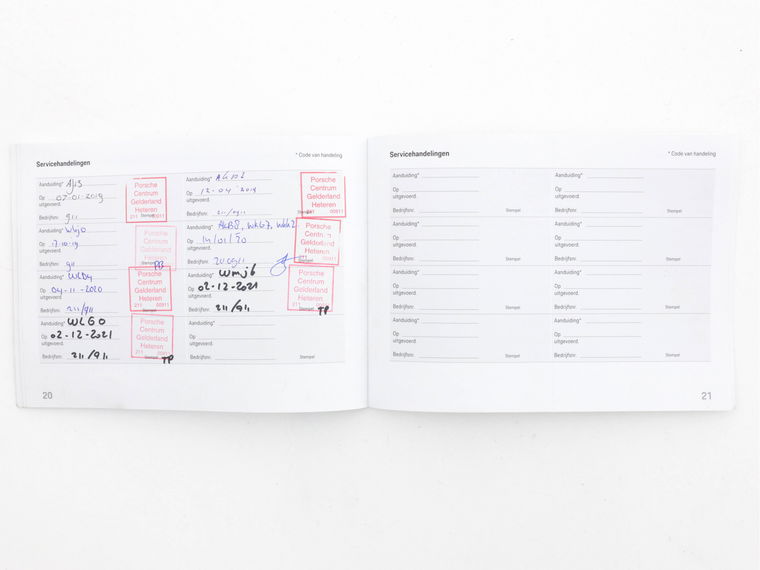 Servicehandelingen
* Code van handeling
Aanduiding*
Op 07-01-2019
uitgevoerd.
Bedrijfsnr. 911
Stempel
Porsche
Centrum
Gelderland
Heteren
211 00911
Aanduiding*
Op 12-04-2019
uitgevoerd.
Bedrijfsnr. 211/911
Stempel
Porsche
Centrum
Gelderland
Heteren
211 00911
Aanduiding*
Op 17-10-19
uitgevoerd.
Bedrijfsnr. 911
Stempel
Porsche
Centrum
Gelderland
Heteren
Aanduiding*
Op
uitgevoerd.
Bedrijfsnr.
Stempel
Porsche
Centrum
Gelderland
Heteren
Aanduiding* WLD4
Op 04-11-2020
uitgevoerd.
Bedrijfsnr. 211/911
Stempel
Porsche
Centrum
Gelderland
Heteren
211 00911
Aanduiding* WMJ6
Op 02-12-2021
uitgevoerd.
Bedrijfsnr. 211/911
Stempel
Porsche
Centrum
Gelderland
Heteren
TP
Aanduiding* WLG0
Op 02-12-2021
uitgevoerd.
Bedrijfsnr. 211/911
Stempel
Porsche
Centrum
Gelderland
Heteren
TP
Aanduiding*
Op
uitgevoerd.
Bedrijfsnr.
Stempel
20
Servicehandelingen
* Code van handeling
Aanduiding*
Op
uitgevoerd.
Bedrijfsnr.
Stempel
Aanduiding*
Op
uitgevoerd.
Bedrijfsnr.
Stempel
Aanduiding*
Op
uitgevoerd.
Bedrijfsnr.
Stempel
Aanduiding*
Op
uitgevoerd.
Bedrijfsnr.
Stempel
Aanduiding*
Op
uitgevoerd.
Bedrijfsnr.
Stempel
Aanduiding*
Op
uitgevoerd.
Bedrijfsnr.
Stempel
Aanduiding*
Op
uitgevoerd.
Bedrijfsnr.
Stempel
Aanduiding*
Op
uitgevoerd.
Bedrijfsnr.
Stempel
21